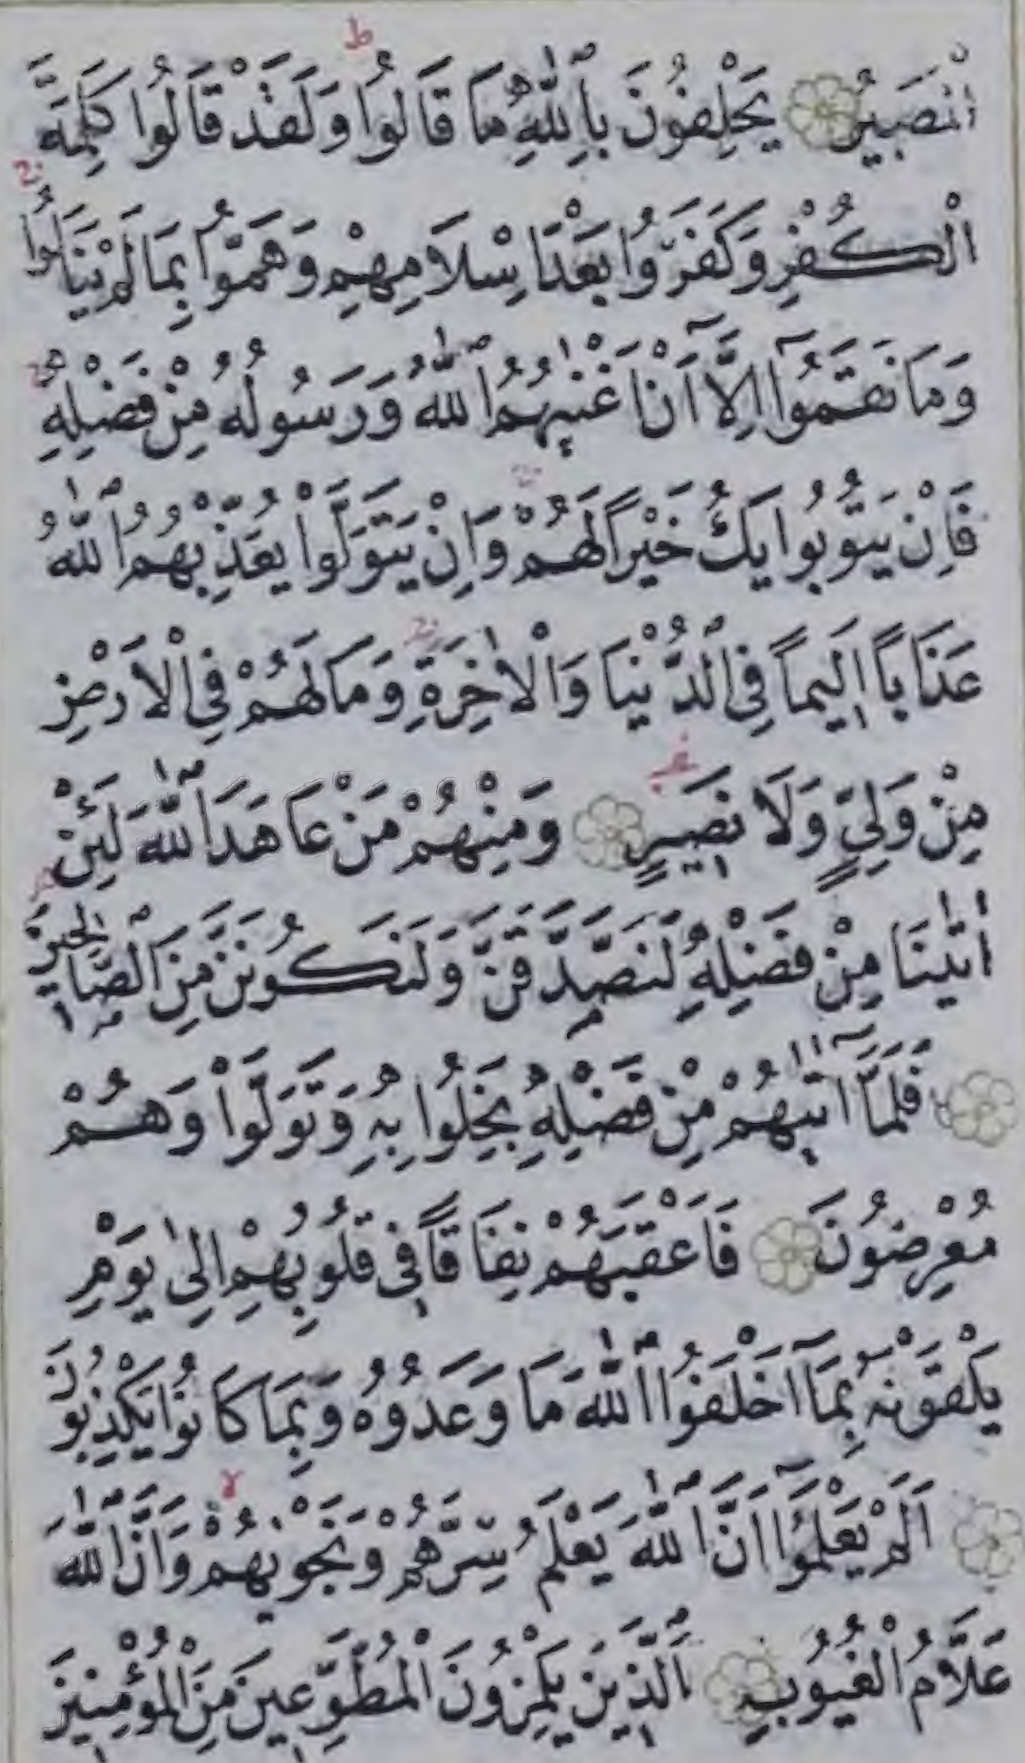 الْمَصٖيرُ يَحْلِفُونَ بِاللّٰهِ مَا قَالُوا وَلَقَدْ قَالُوا كَلِمَةَ
الْكُفْرِ وَكَفَرُوا بَعْدَ اِسْلَامِهِمْ وَهَمُّوا بِمَا لَمْ يَنَالُوا
وَمَا نَقَمُوٓا اِلَّٓا اَنْ اَغْنٰيهُمُ اللّٰهُ وَرَسُولُهُ مِنْ فَضْلِهِ
فَاِنْ يَتُوبُوا يَكُ خَيْرًا لَهُمْ وَاِنْ يَتَوَلَّوْا يُعَذِّبْهُمُ اللّٰهُ
عَذَابًا اَلٖيمًا فِي الدُّنْيَا وَالْاٰخِرَةِ وَمَا لَهُمْ فِي الْاَرْضِ
مِنْ وَلِيٍّ وَلَا نَصٖيرٍ وَمِنْهُمْ مَنْ عَاهَدَ اللّٰهَ لَئِنْ
اٰتٰينَا مِنْ فَضْلِهِ لَنَصَّدَّقَنَّ وَلَنَكُونَنَّ مِنَ الصَّالِحٖينَ
فَلَمَّٓا اٰتٰيهُمْ مِنْ فَضْلِهِ بَخِلُوا بِهِ وَتَوَلَّوْا وَهُمْ
مُعْرِضُونَ فَاَعْقَبَهُمْ نِفَاقًا فٖي قُلُوبِهِمْ اِلٰى يَوْمِ
يَلْقَوْنَهُ بِمَٓا اَخْلَفُوا اللّٰهَ مَا وَعَدُوهُ وَبِمَا كَانُوا يَكْذِبُونَ
اَلَمْ يَعْلَمُوٓا اَنَّ اللّٰهَ يَعْلَمُ سِرَّهُمْ وَنَجْوٰيهُمْ وَاَنَّ اللّٰهَ
عَلَّامُ الْغُيُوبِ اَلَّذٖينَ يَلْمِزُونَ الْمُطَّوِّعٖينَ مِنَ الْمُؤْمِنٖينَ